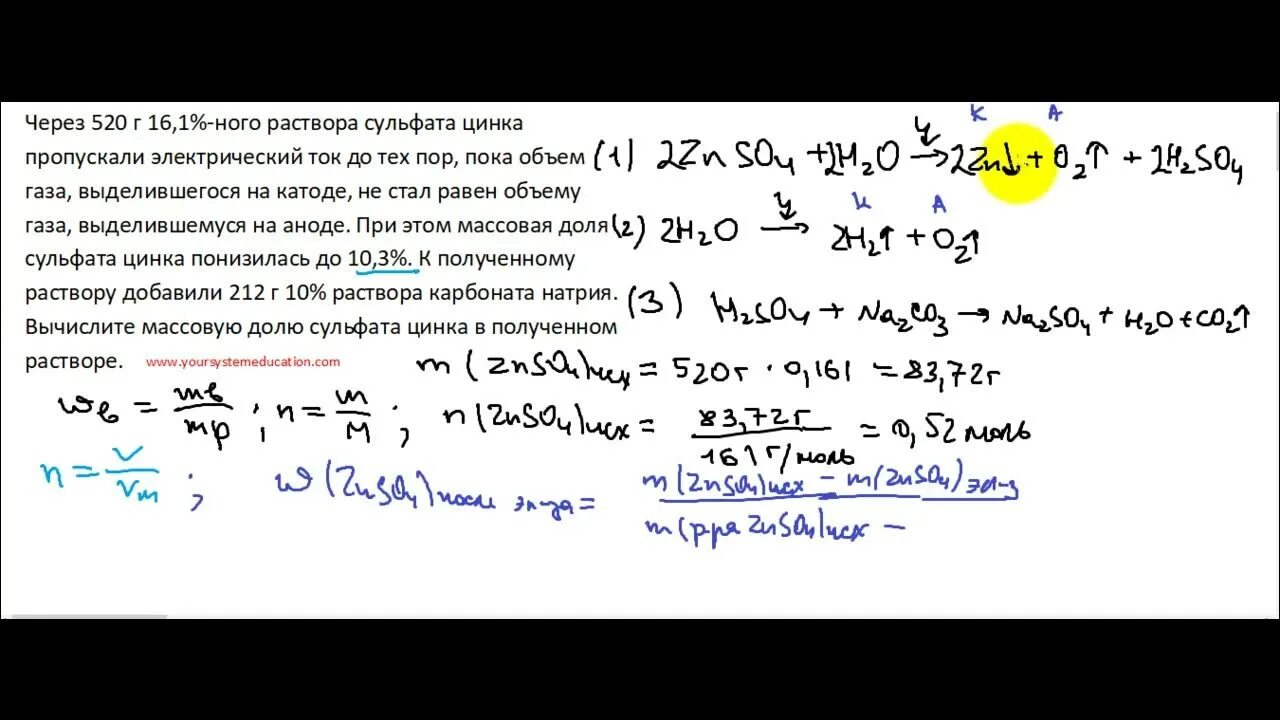 Через 520 г 16,1%-ного раствора сульфата цинка
пропускали электрический ток до тех пор, пока объем
газа, выделившегося на катоде, не стал равен объему
газа, выделившемуся на аноде. При этом массовая доля
сульфата цинка понизилась до 10,3%. К полученному
раствору добавили 212 г 10% раствора карбоната натрия.
Вычислите массовую долю сульфата цинка в полученном
растворе. www.yoursystemeducation.com
К А
(1) 2ZnSO₄ + 2H₂O → 2Zn↓ + O₂↑ + 2H₂SO₄
К А
(2) 2H₂O → 2H₂↑ + O₂↑
(3) H₂SO₄ + Na₂CO₃ → Na₂SO₄ + H₂O + CO₂↑
m(ZnSO₄)исх = 520г · 0,161 = 83,72г
wв = mв/mр ; n = m/M ; n(ZnSO₄)исх = 83,72г / 161г/моль = 0,52моль
n = V/Vm ; w(ZnSO₄)после эл-за = m(ZnSO₄)исх – m(ZnSO₄)эл-з
m(р-ра ZnSO₄)исх –